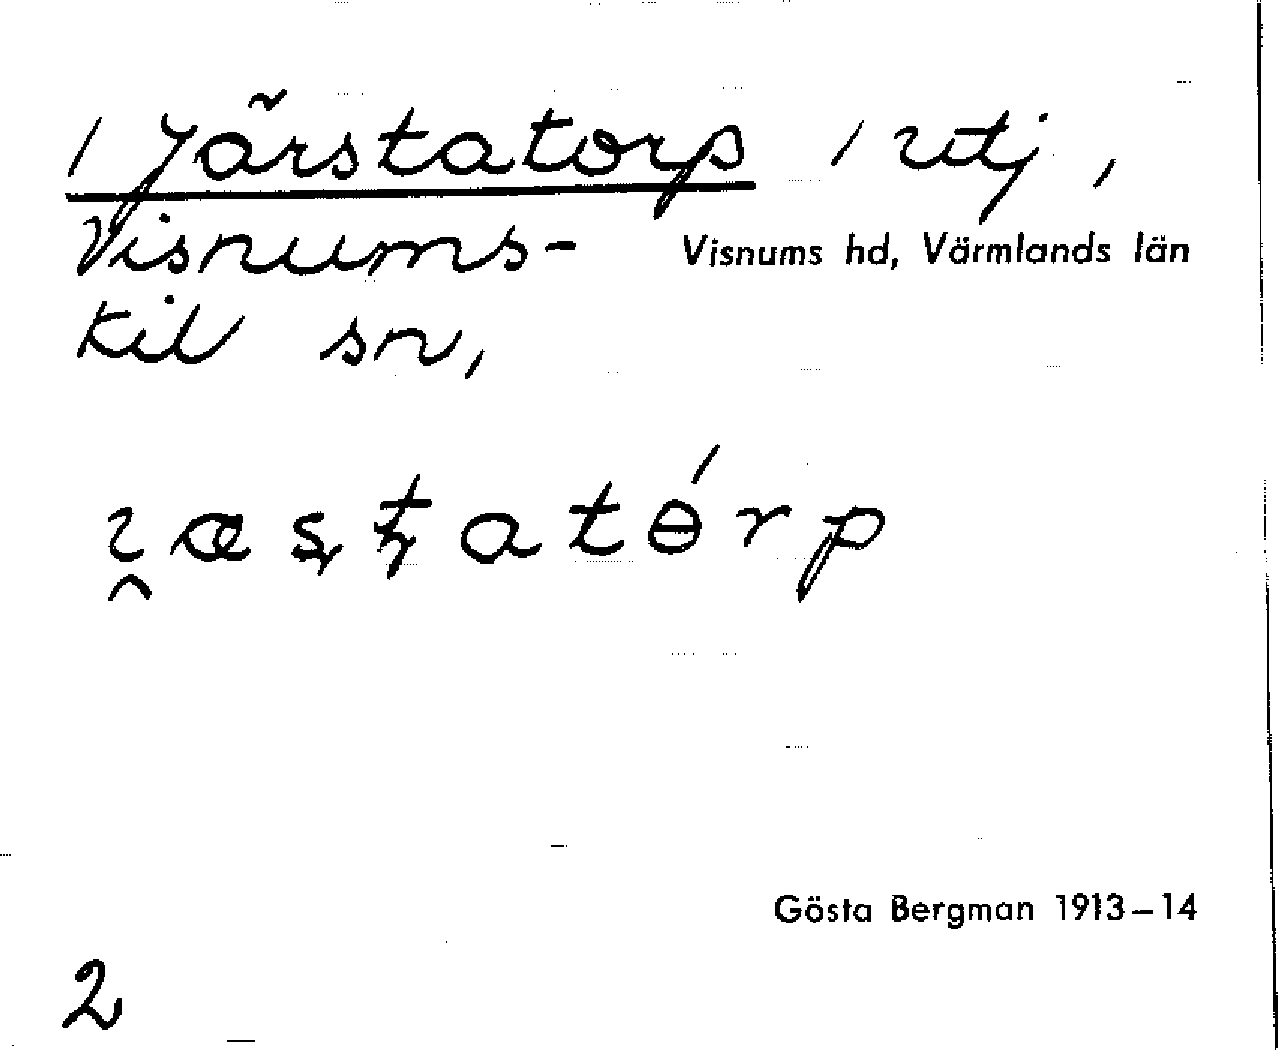 / Järstatorp / utj,
Visnums-
Visnums hd, Värmlands län
Kil sn,
ı̯æʂʈatɵ́rp
Gösta Bergman 1913–14
2